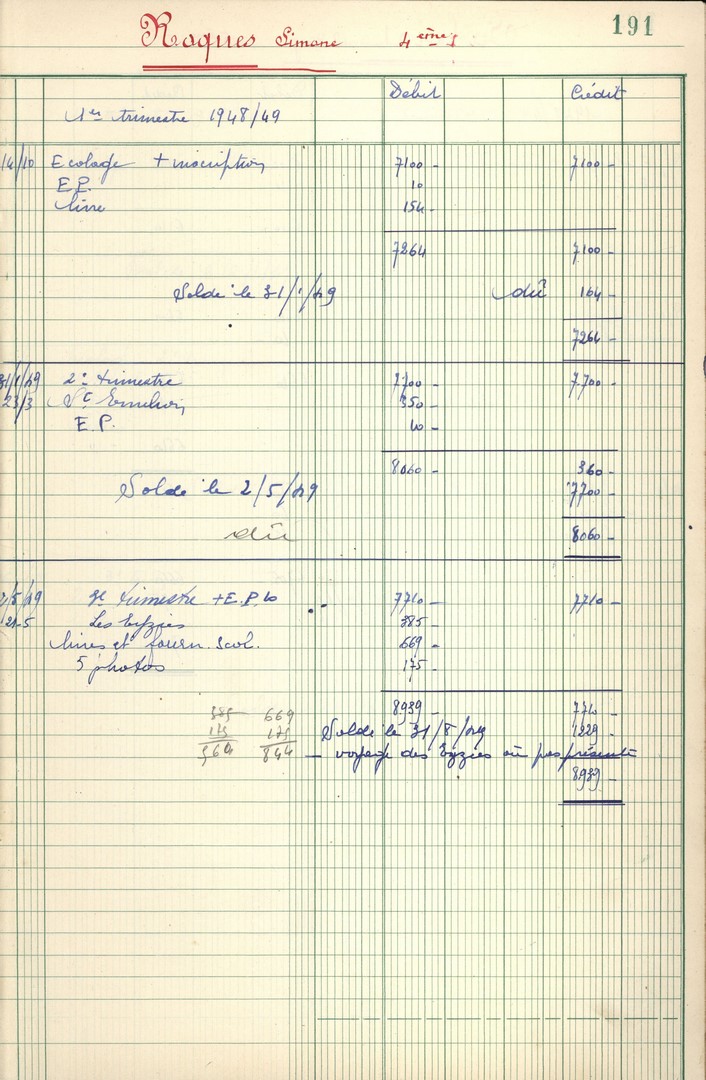 191
Roques Simone 4èmes
Débit Crédit
1er trimestre 1948/49
14/10 Ecolage + inscription 7100 - 7100 -
E.P. 10
livre 154 -
7264 7100 -
Solde le 31/1/49 dû 164 -
7264 -
31/1/49 2e trimestre 7700 - 7.700 -
23/3 St Emilion 350 -
E.P. 10 -
8060 - 360 -
Solde le 2/5/49 7700 -
dû 8060 -
2/5/49 3e trimestre + E.P. 10 7710 - 7710 -
21-5 Les Eyzies 385 -
livres et fourn. scol. 669 -
5 photos 175 -
8939 - 7710
385 669 Solde le 31/8/49 1229 -
175 175 — voyage des Eyzies où pas présente
560 844 8939 -